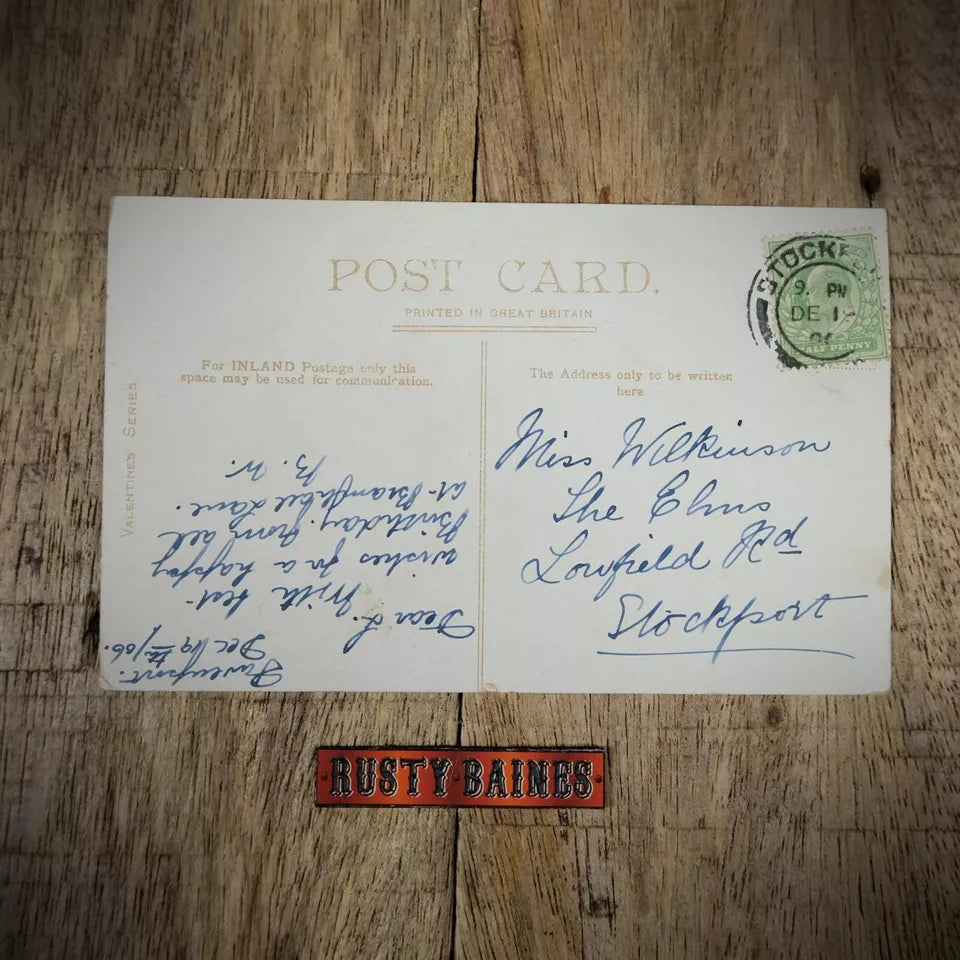 POST CARD.
PRINTED IN GREAT BRITAIN
VALENTINES SERIES.
For INLAND Postage only this
space may be used for communication.
The Address only to be written
here
9. PM
DE 1
HALF PENNY
Miss Wilkinson
The Elms
Lowfield Rd
Stockport
Davenport.
Dec 19th/06.
Dear L.
With best
wishes for a happy
Birthday. from all
at Bramhall Lane.
B. W.
RUSTY BAINES